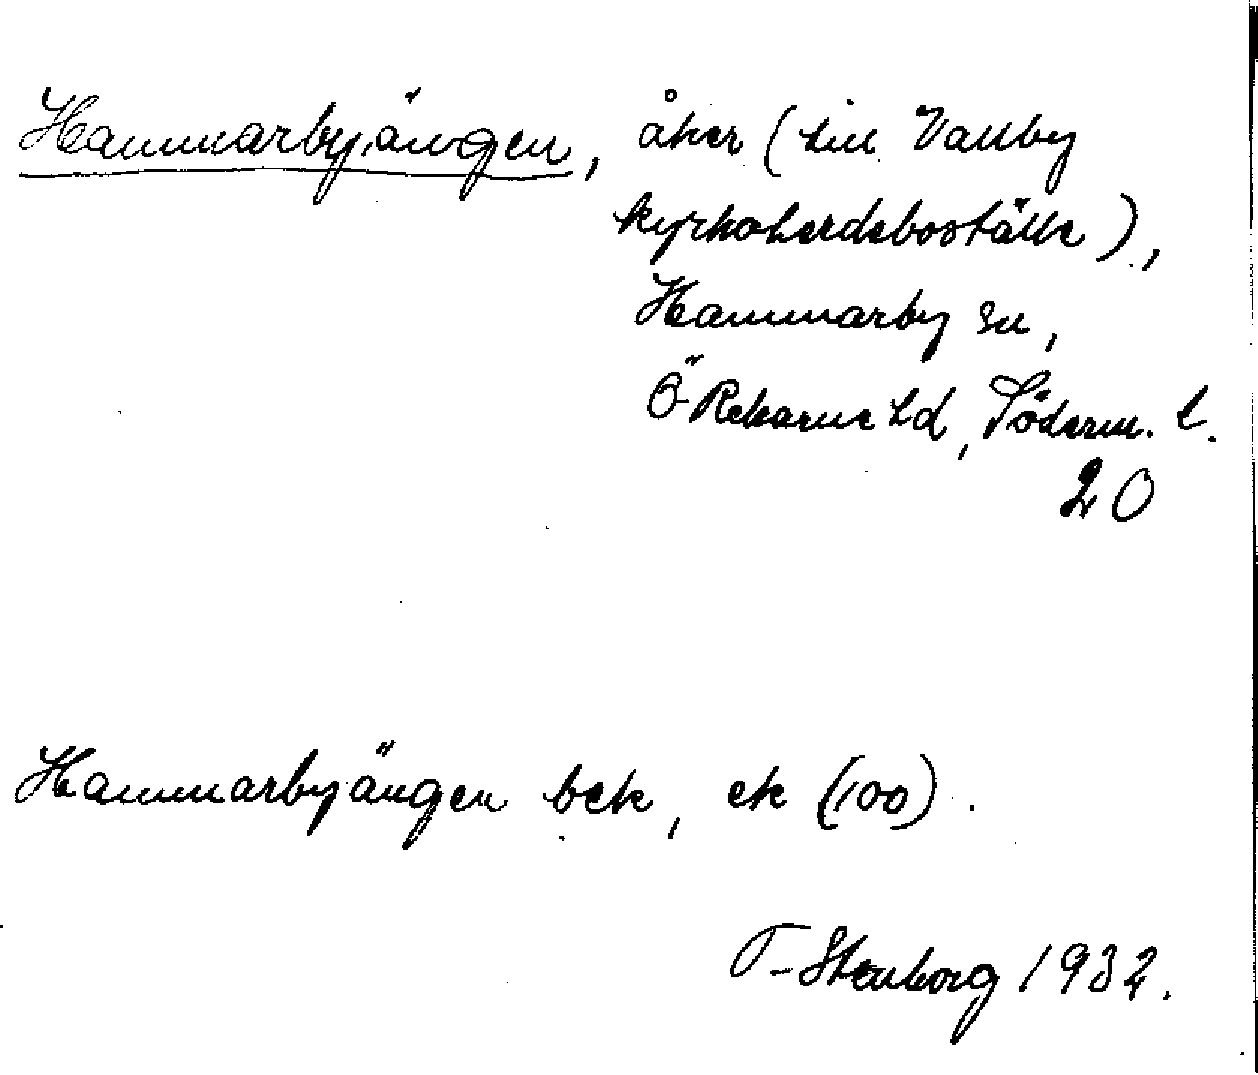 Hammarbyängen, åker (till Vallby
kyrkoherdeboställe),
Hammarby sn,
Ö Rekarne hd, Söderm. l.
20
Hammarbyängen bek, ek (100).
T. Stenborg 1932.